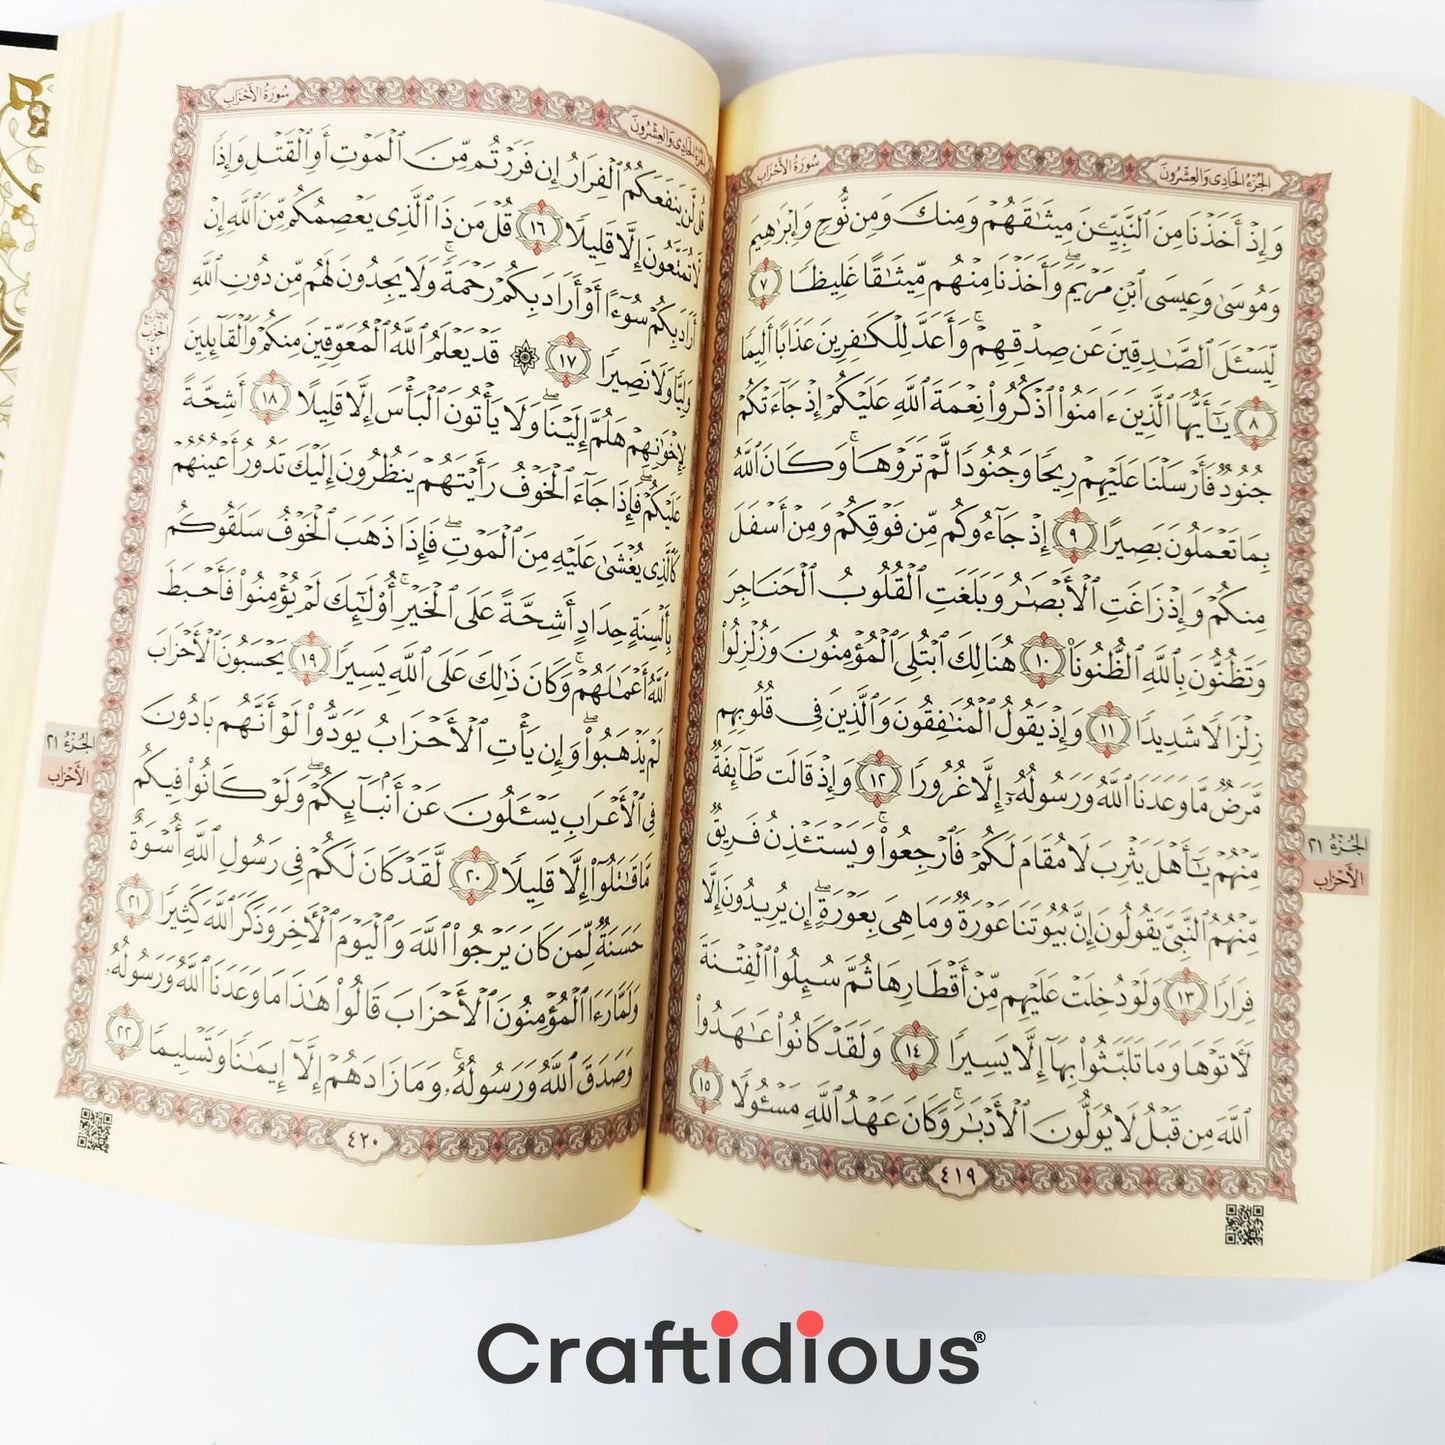 الجزء الحادي والعشرون
سورة الأحزاب
وَإِذْ أَخَذْنَا مِنَ ٱلنَّبِيِّـۧنَ مِيثَٰقَهُمْ وَمِنكَ وَمِن نُّوحٍ وَإِبْرَٰهِيمَ
وَمُوسَىٰ وَعِيسَى ٱبْنِ مَرْيَمَۖ وَأَخَذْنَا مِنْهُم مِّيثَٰقًا غَلِيظًا ٧
لِّيَسْـَٔلَ ٱلصَّٰدِقِينَ عَن صِدْقِهِمْۚ وَأَعَدَّ لِلْكَٰفِرِينَ عَذَابًا أَلِيمًا
٨ يَٰٓأَيُّهَا ٱلَّذِينَ ءَامَنُوا۟ ٱذْكُرُوا۟ نِعْمَةَ ٱللَّهِ عَلَيْكُمْ إِذْ جَآءَتْكُمْ
جُنُودٌ فَأَرْسَلْنَا عَلَيْهِمْ رِيحًا وَجُنُودًا لَّمْ تَرَوْهَاۚ وَكَانَ ٱللَّهُ
بِمَا تَعْمَلُونَ بَصِيرًا ٩ إِذْ جَآءُوكُم مِّن فَوْقِكُمْ وَمِنْ أَسْفَلَ
مِنكُمْ وَإِذْ زَاغَتِ ٱلْأَبْصَٰرُ وَبَلَغَتِ ٱلْقُلُوبُ ٱلْحَنَاجِرَ
وَتَظُنُّونَ بِٱللَّهِ ٱلظُّنُونَا۠ ١٠ هُنَالِكَ ٱبْتُلِىَ ٱلْمُؤْمِنُونَ وَزُلْزِلُوا۟
زِلْزَالًا شَدِيدًا ١١ وَإِذْ يَقُولُ ٱلْمُنَٰفِقُونَ وَٱلَّذِينَ فِى قُلُوبِهِم
مَّرَضٌ مَّا وَعَدَنَا ٱللَّهُ وَرَسُولُهُۥٓ إِلَّا غُرُورًا ١٢ وَإِذْ قَالَت طَّآئِفَةٌ
مِّنْهُمْ يَٰٓأَهْلَ يَثْرِبَ لَا مُقَامَ لَكُمْ فَٱرْجِعُوا۟ۚ وَيَسْتَـْٔذِنُ فَرِيقٌ
مِّنْهُمُ ٱلنَّبِىَّ يَقُولُونَ إِنَّ بُيُوتَنَا عَوْرَةٌ وَمَا هِىَ بِعَوْرَةٍۖ إِن يُرِيدُونَ إِلَّا
فِرَارًا ١٣ وَلَوْ دُخِلَتْ عَلَيْهِم مِّنْ أَقْطَارِهَا ثُمَّ سُئِلُوا۟ ٱلْفِتْنَةَ
لَـَٔاتَوْهَا وَمَا تَلَبَّثُوا۟ بِهَآ إِلَّا يَسِيرًا ١٤ وَلَقَدْ كَانُوا۟ عَٰهَدُوا۟
ٱللَّهَ مِن قَبْلُ لَا يُوَلُّونَ ٱلْأَدْبَٰرَۚ وَكَانَ عَهْدُ ٱللَّهِ مَسْـُٔولًا ١٥
الجزء ٢١
الأحزاب
٤١٩
الجزء الحادي والعشرون
سورة الأحزاب
قُل لَّن يَنفَعَكُمُ ٱلْفِرَارُ إِن فَرَرْتُم مِّنَ ٱلْمَوْتِ أَوِ ٱلْقَتْلِ وَإِذًا
لَّا تُمَتَّعُونَ إِلَّا قَلِيلًا ١٦ قُلْ مَن ذَا ٱلَّذِى يَعْصِمُكُم مِّنَ ٱللَّهِ إِنْ
أَرَادَ بِكُمْ سُوٓءًا أَوْ أَرَادَ بِكُمْ رَحْمَةًۚ وَلَا يَجِدُونَ لَهُم مِّن دُونِ ٱللَّهِ
وَلِيًّا وَلَا نَصِيرًا ١٧ ۞ قَدْ يَعْلَمُ ٱللَّهُ ٱلْمُعَوِّقِينَ مِنكُمْ وَٱلْقَآئِلِينَ
لِإِخْوَٰنِهِمْ هَلُمَّ إِلَيْنَاۖ وَلَا يَأْتُونَ ٱلْبَأْسَ إِلَّا قَلِيلًا ١٨ أَشِحَّةً
عَلَيْكُمْۖ فَإِذَا جَآءَ ٱلْخَوْفُ رَأَيْتَهُمْ يَنظُرُونَ إِلَيْكَ تَدُورُ أَعْيُنُهُمْ
كَٱلَّذِى يُغْشَىٰ عَلَيْهِ مِنَ ٱلْمَوْتِۖ فَإِذَا ذَهَبَ ٱلْخَوْفُ سَلَقُوكُم
بِأَلْسِنَةٍ حِدَادٍ أَشِحَّةً عَلَى ٱلْخَيْرِۚ أُو۟لَٰٓئِكَ لَمْ يُؤْمِنُوا۟ فَأَحْبَطَ
ٱللَّهُ أَعْمَٰلَهُمْۚ وَكَانَ ذَٰلِكَ عَلَى ٱللَّهِ يَسِيرًا ١٩ يَحْسَبُونَ ٱلْأَحْزَابَ
لَمْ يَذْهَبُوا۟ۖ وَإِن يَأْتِ ٱلْأَحْزَابُ يَوَدُّوا۟ لَوْ أَنَّهُم بَادُونَ
فِى ٱلْأَعْرَابِ يَسْـَٔلُونَ عَنْ أَنۢبَآئِكُمْۖ وَلَوْ كَانُوا۟ فِيكُم
مَّا قَٰتَلُوٓا۟ إِلَّا قَلِيلًا ٢٠ لَّقَدْ كَانَ لَكُمْ فِى رَسُولِ ٱللَّهِ أُسْوَةٌ
حَسَنَةٌ لِّمَن كَانَ يَرْجُوا۟ ٱللَّهَ وَٱلْيَوْمَ ٱلْـَٔاخِرَ وَذَكَرَ ٱللَّهَ كَثِيرًا ٢١
وَلَمَّا رَءَا ٱلْمُؤْمِنُونَ ٱلْأَحْزَابَ قَالُوا۟ هَٰذَا مَا وَعَدَنَا ٱللَّهُ وَرَسُولُهُۥ
وَصَدَقَ ٱللَّهُ وَرَسُولُهُۥۚ وَمَا زَادَهُمْ إِلَّآ إِيمَٰنًا وَتَسْلِيمًا ٢٢
الحزب
٤٢
الجزء ٢١
الأحزاب
٤٢٠
Craftidious®